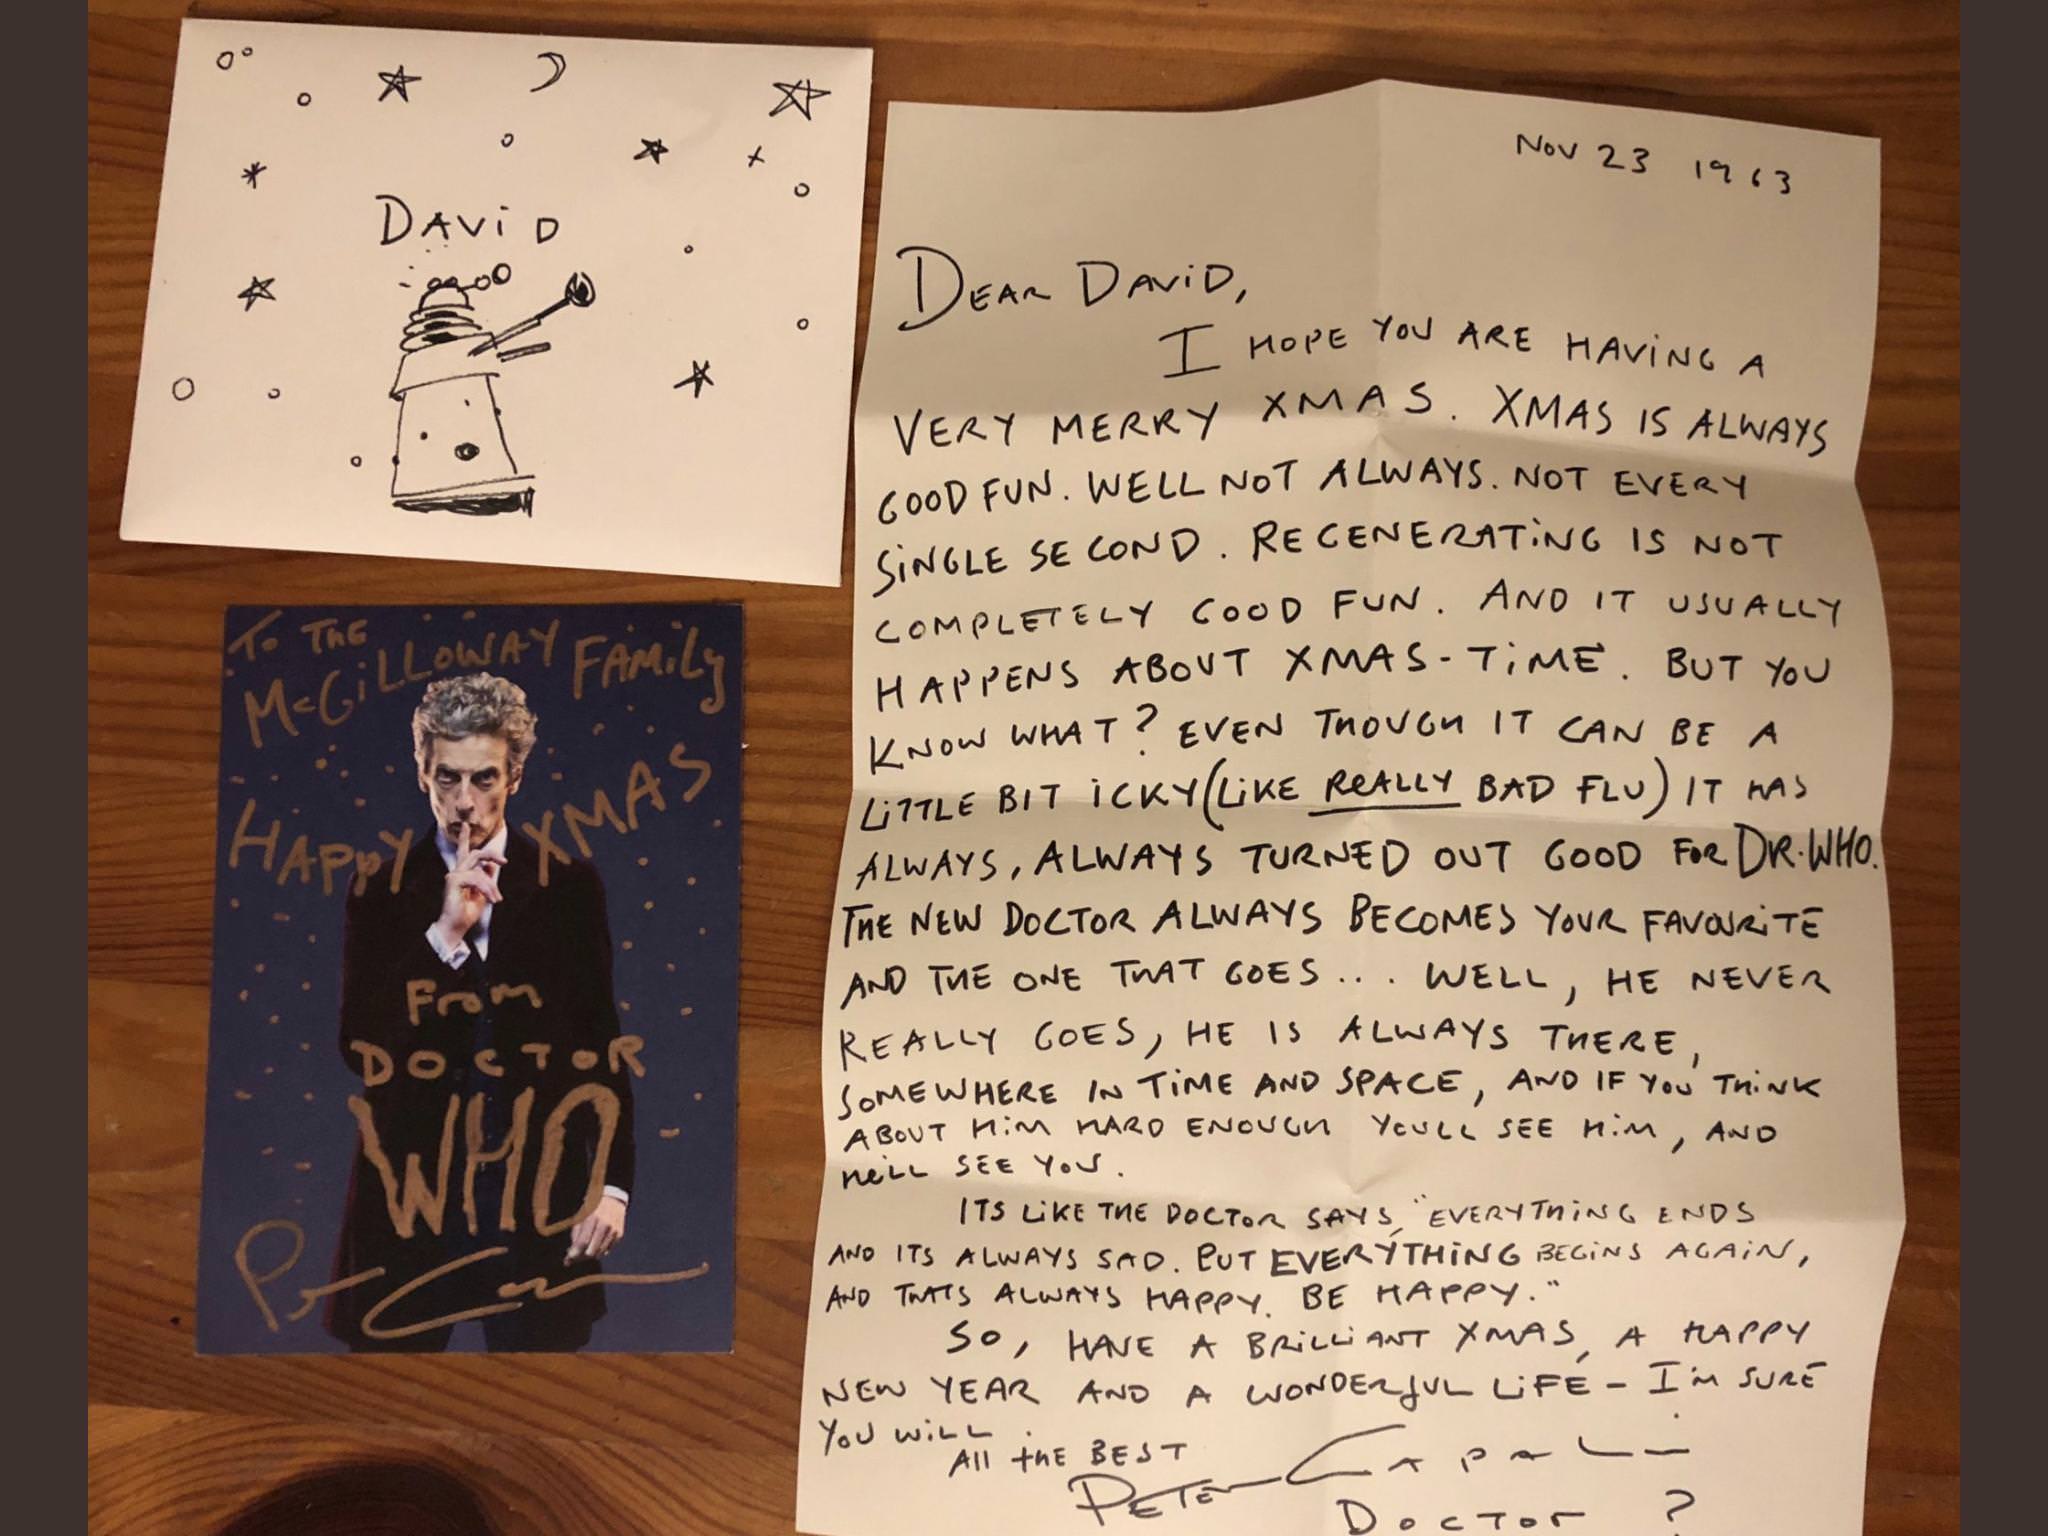 DAViD
To THE
McGiLLOWAY FAMiLy
HAPPY XMAS
From
DOCTOR
WHO
Nov 23 1963
DEAR DAViD,
I HOPE YOU ARE HAViNG A
VERY MERRY XMAS. XMAS IS ALWAYS
GOOD FUN. WELL NOT ALWAYS. NOT EVERY
SiNGLE SECOND. REGENERATiNG IS NOT
COMPLETELY GOOD FUN. AND IT USUALLY
HAPPENS ABOUT XMAS-TiME. BUT YOU
KNOW WHAT? EVEN THOUGH IT CAN BE A
LiTTLE BIT iCKY (LiKE REALLY BAD FLU) IT HAS
ALWAYS, ALWAYS TURNED OUT GOOD FOR DR. WHO.
THE NEW DOCTOR ALWAYS BECOMES YOUR FAVOURiTE
AND THE ONE THAT GOES... WELL, HE NEVER
REALLY GOES, HE IS ALWAYS THERE,
SOMEWHERE IN TiME AND SPACE, AND IF YOU THiNK
ABOUT HiM HARD ENOUGH YOULL SEE HiM, AND
HEiLL SEE YOU.
ITS LiKE THE DOCTOR SAYS, "EVERYTHiNG ENDS
AND ITS ALWAYS SAD. BUT EVERYTHiNG BEGiNS AGAiN,
AND THATS ALWAYS HAPPY. BE HAPPY."
SO, HAVE A BRiLLiANT XMAS, A HAPPY
NEW YEAR AND A WONDERfUL LiFE - I'M SURE
YOU WiLL.
All tHE BEST
PETER CAPALDi
DOCTOR ?